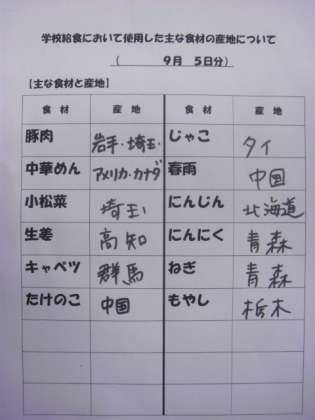 学校給食において使用した主な食材の産地について
( 9月 5日分)
【主な食材と産地】
食材 産地 食材 産地
豚肉 岩手・埼玉・ じゃこ タイ
中華めん アメリカ・カナダ 春雨 中国
小松菜 埼玉 にんじん 北海道
生姜 高知 にんにく 青森
キャベツ 群馬 ねぎ 青森
たけのこ 中国 もやし 栃木